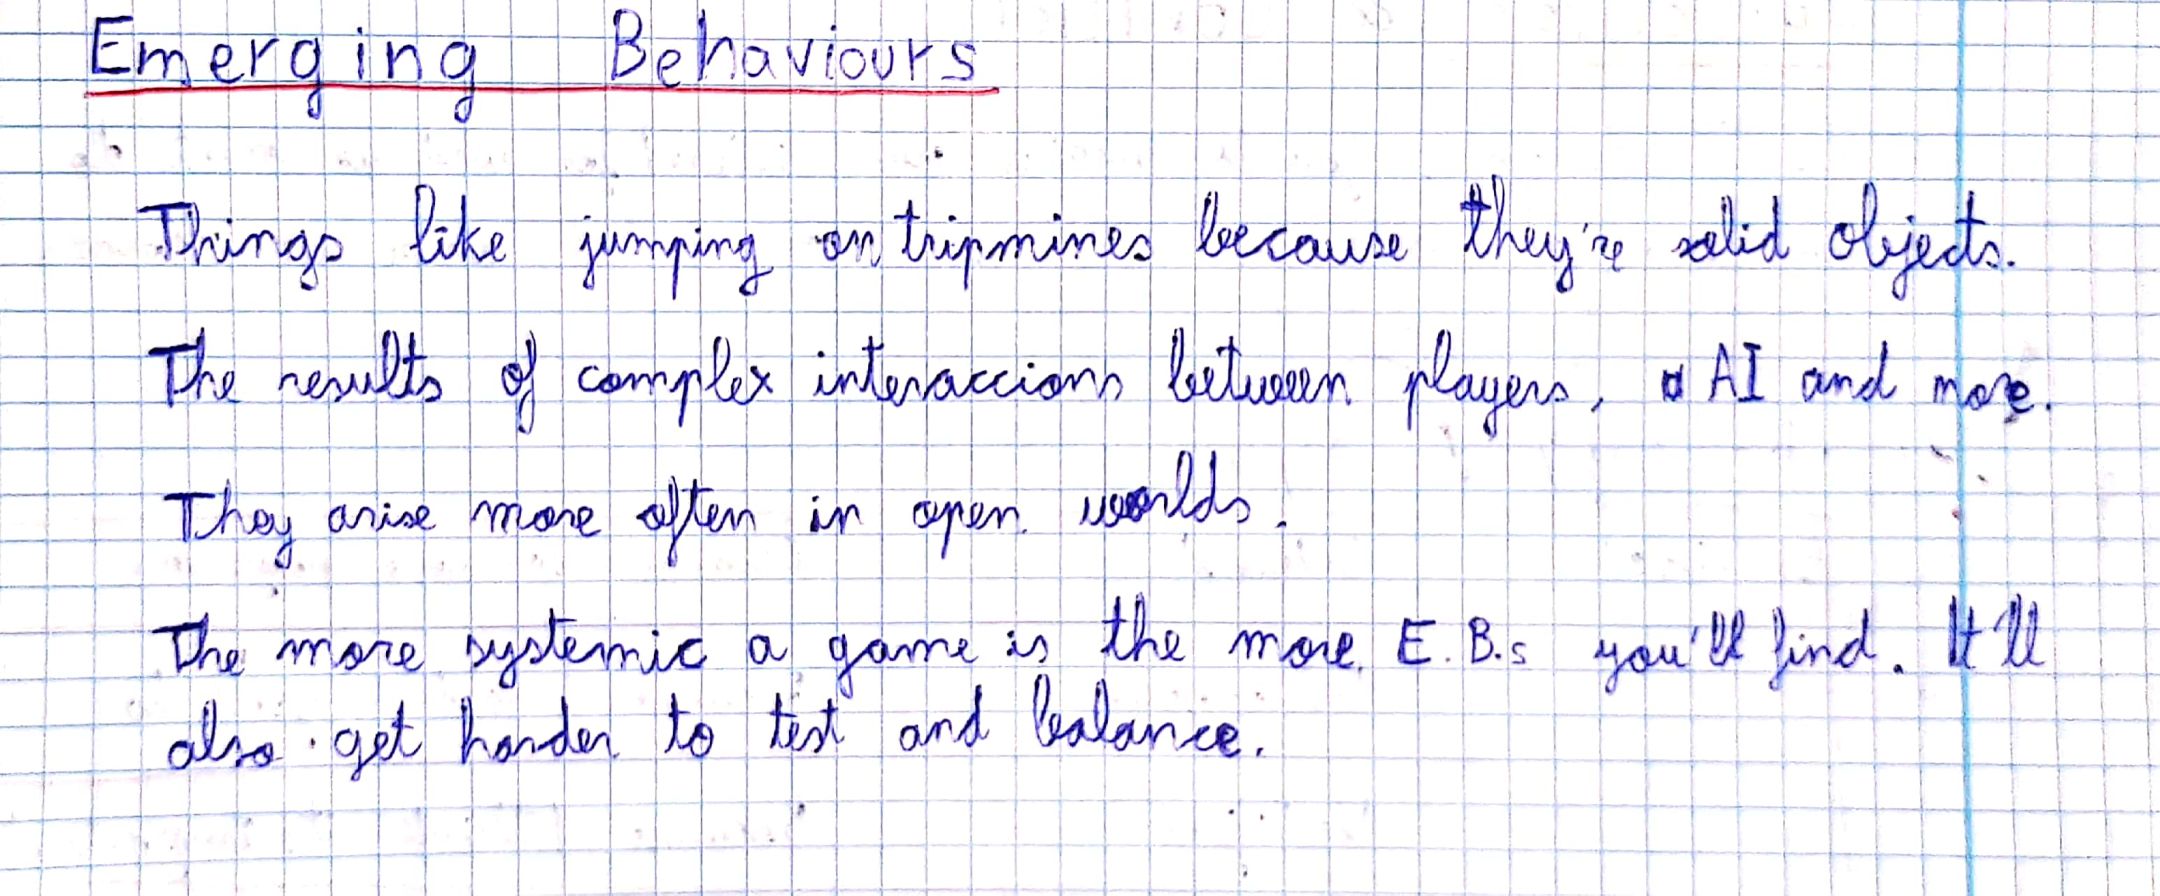 Emerging Behaviours
Things like jumping on tripmines because they're solid objects.
The results of complex interaccions between players, AI and more.
They arise more often in open worlds.
The more systemic a game is the more E.B.s you'll find. It'll
also get harder to test and balance.